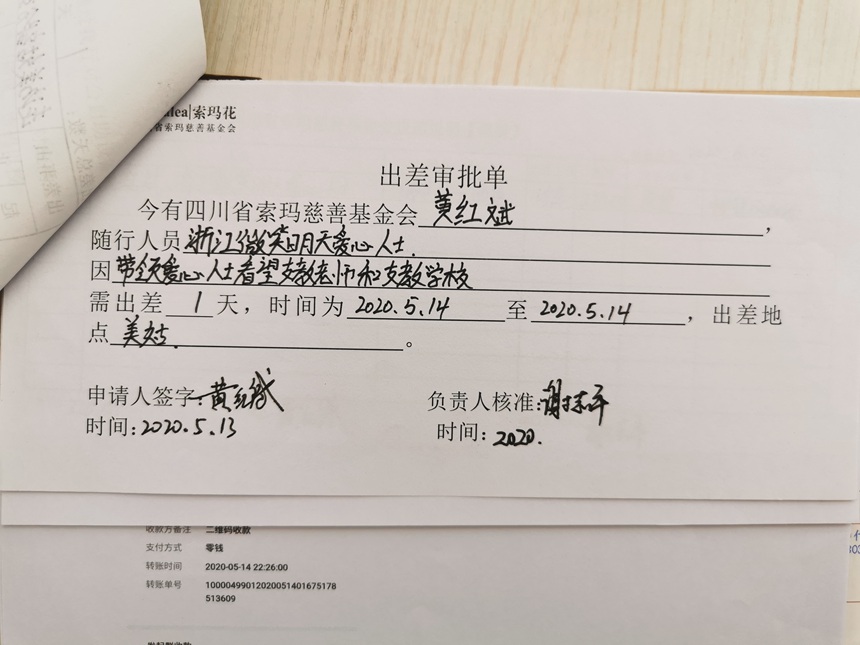 lea|索玛花
省索玛慈善基金会
出差审批单
今有四川省索玛慈善基金会 黄红斌 ，
随行人员 浙江微笑明天爱心人士.
因 带领爱心人士看望支教老师和支教学校
需出差 1 天，时间为 2020.5.14 至 2020.5.14 ，出差地
点 美姑. 。
申请人签字: 黄红斌
负责人核准:
时间: 2020.5.13
时间: 2020.
收款方备注 二维码收款
支付方式 零钱
转账时间 2020-05-14 22:26:00
转账单号 10000499012020051401675178
513609